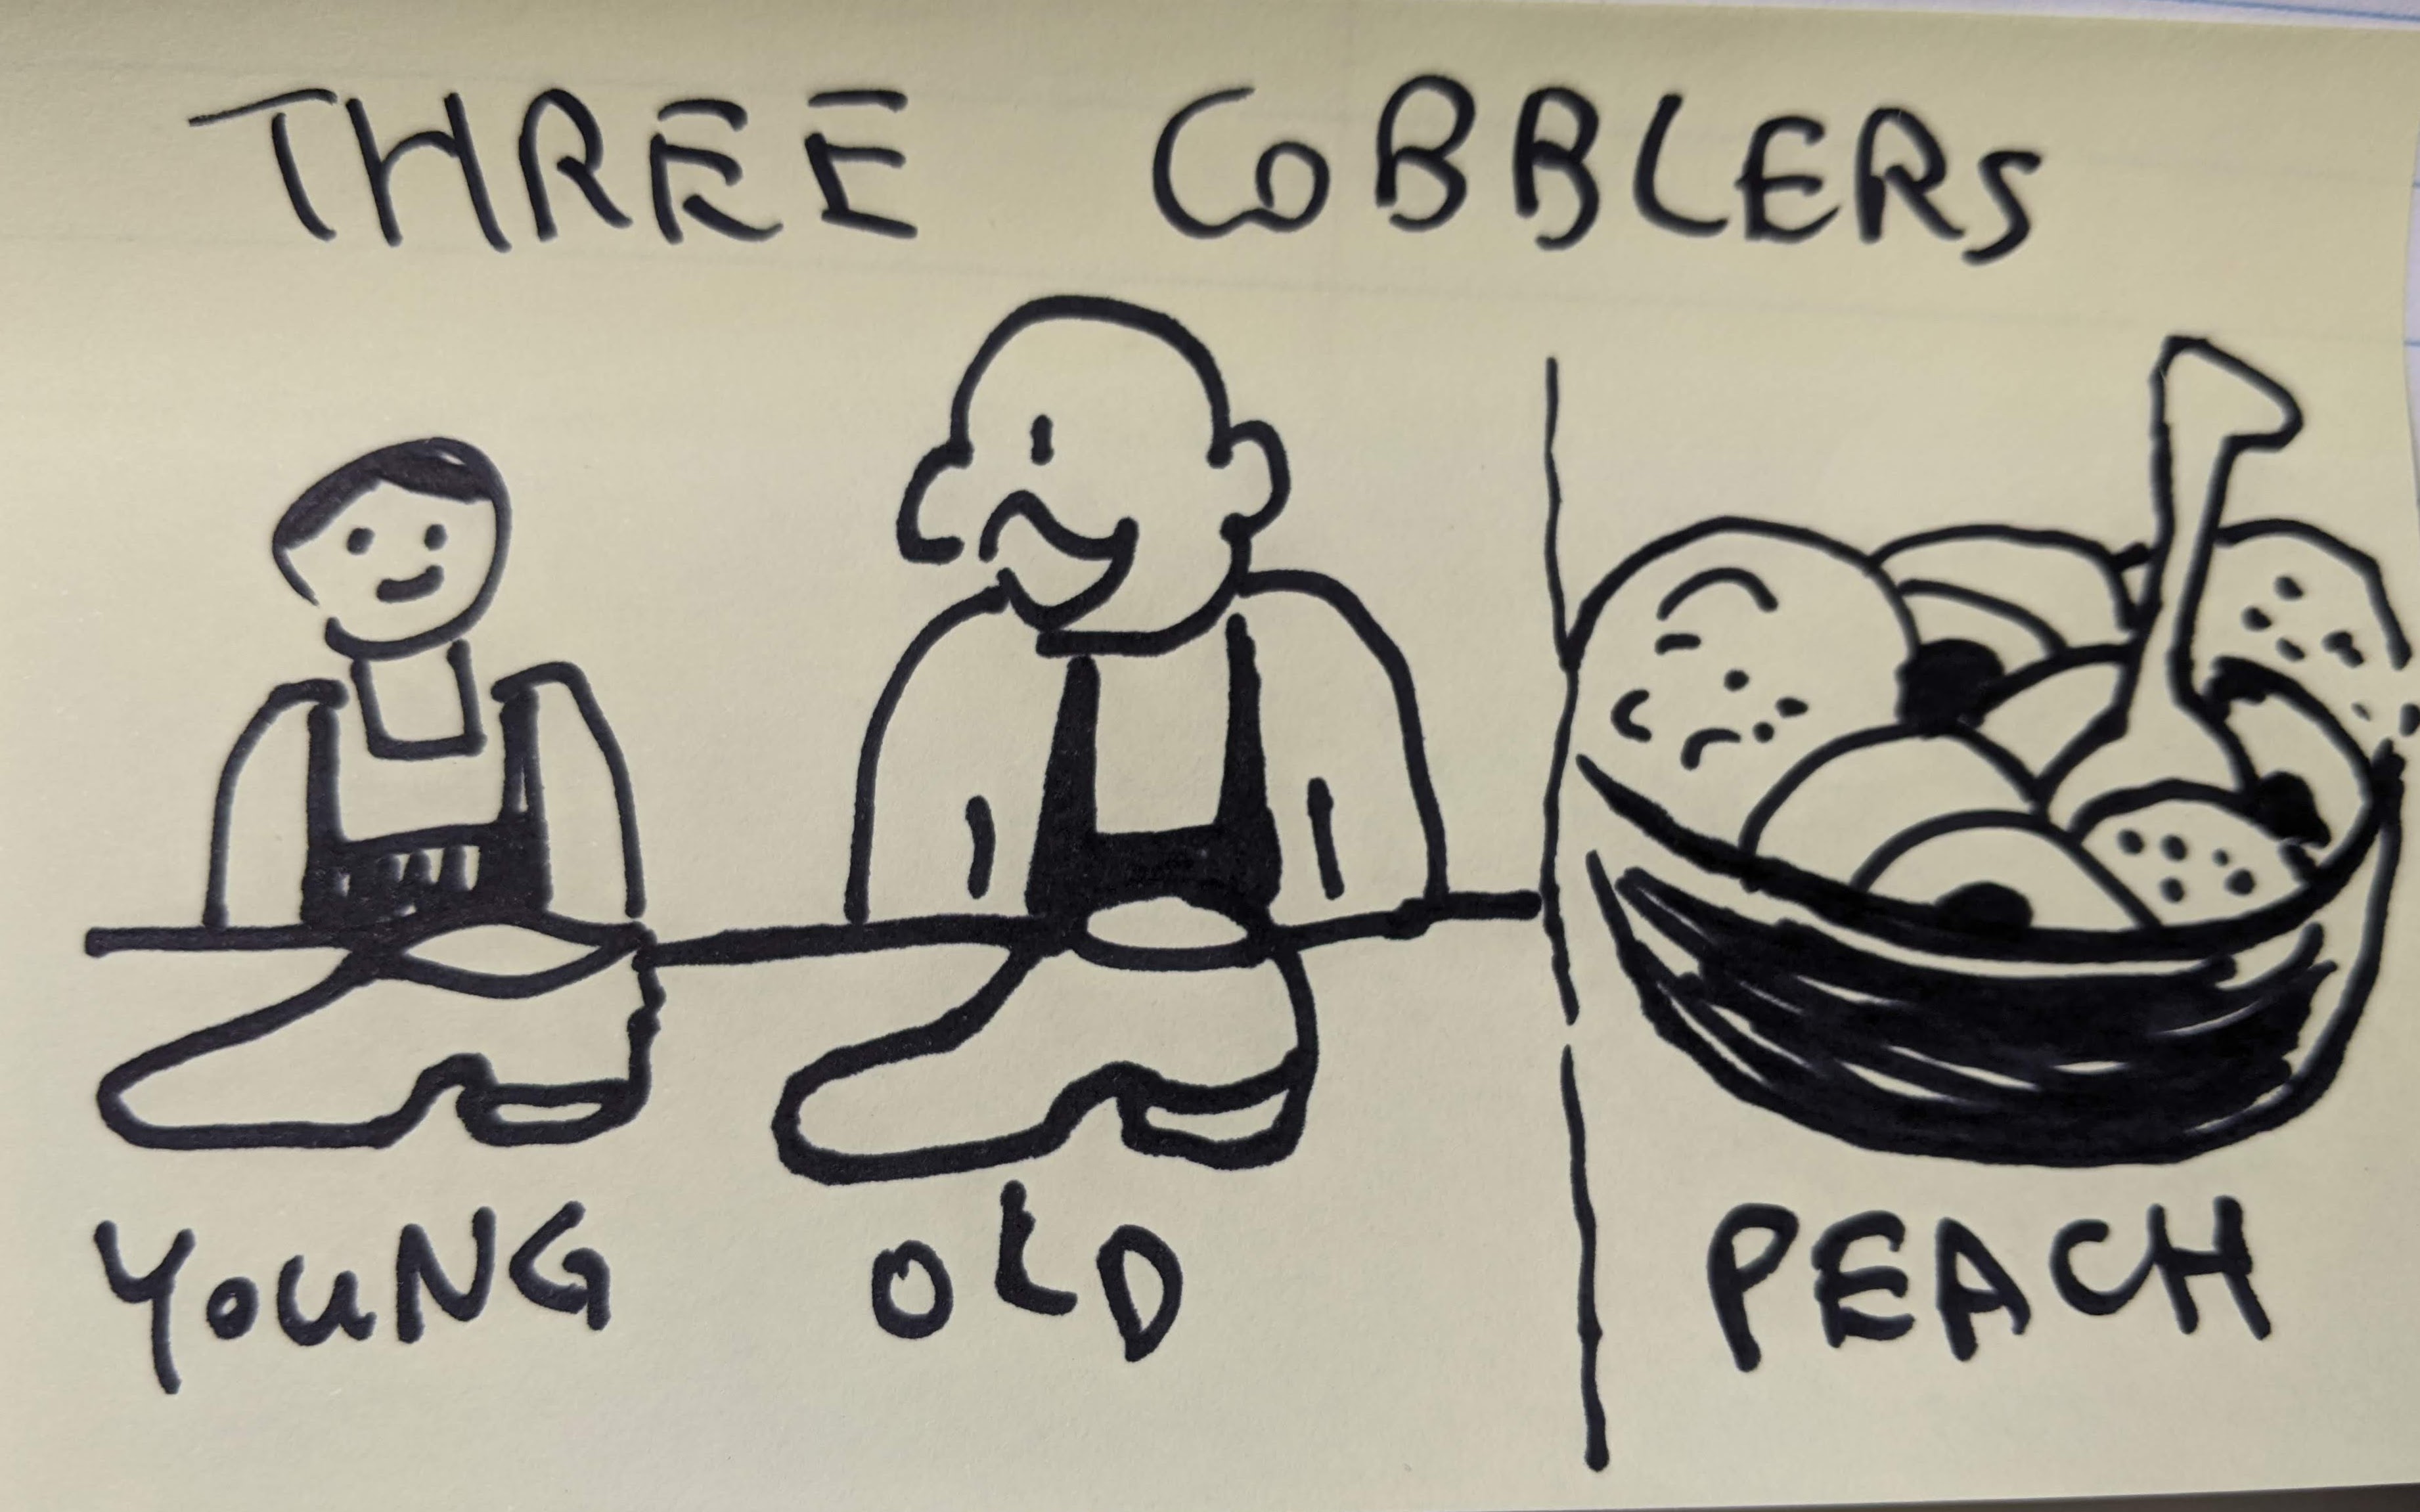 THREE COBBLERS
YOUNG OLD PEACH